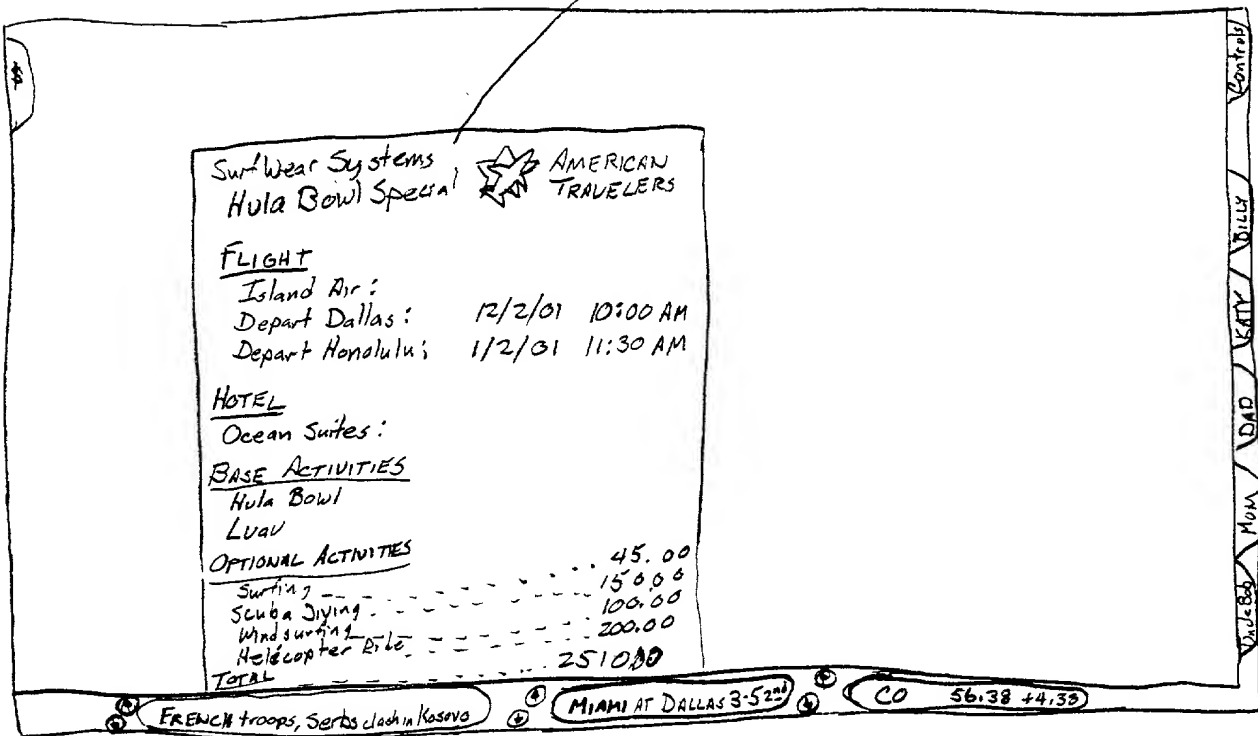 Controls
SurfWear Systems
Hula Bowl Special
AMERICAN
TRAVELERS
FLIGHT
Island Air:
Depart Dallas: 12/2/01 10:00 AM
Depart Honolulu: 1/2/01 11:30 AM
HOTEL
Ocean Suites:
BASE ACTIVITIES
Hula Bowl
Luau
OPTIONAL ACTIVITIES
Surfing 45.00
Scuba Diving 150.00
Windsurfing 100.00
Helecopter Ride 200.00
TOTAL 2510.00
BILLY
KATY
DAD
MUM
Uncle Bob
FRENCH troops, Serbs clash in Kosovo
MIAMI AT DALLAS 3-5 2nd
CO 56.38 +4.33